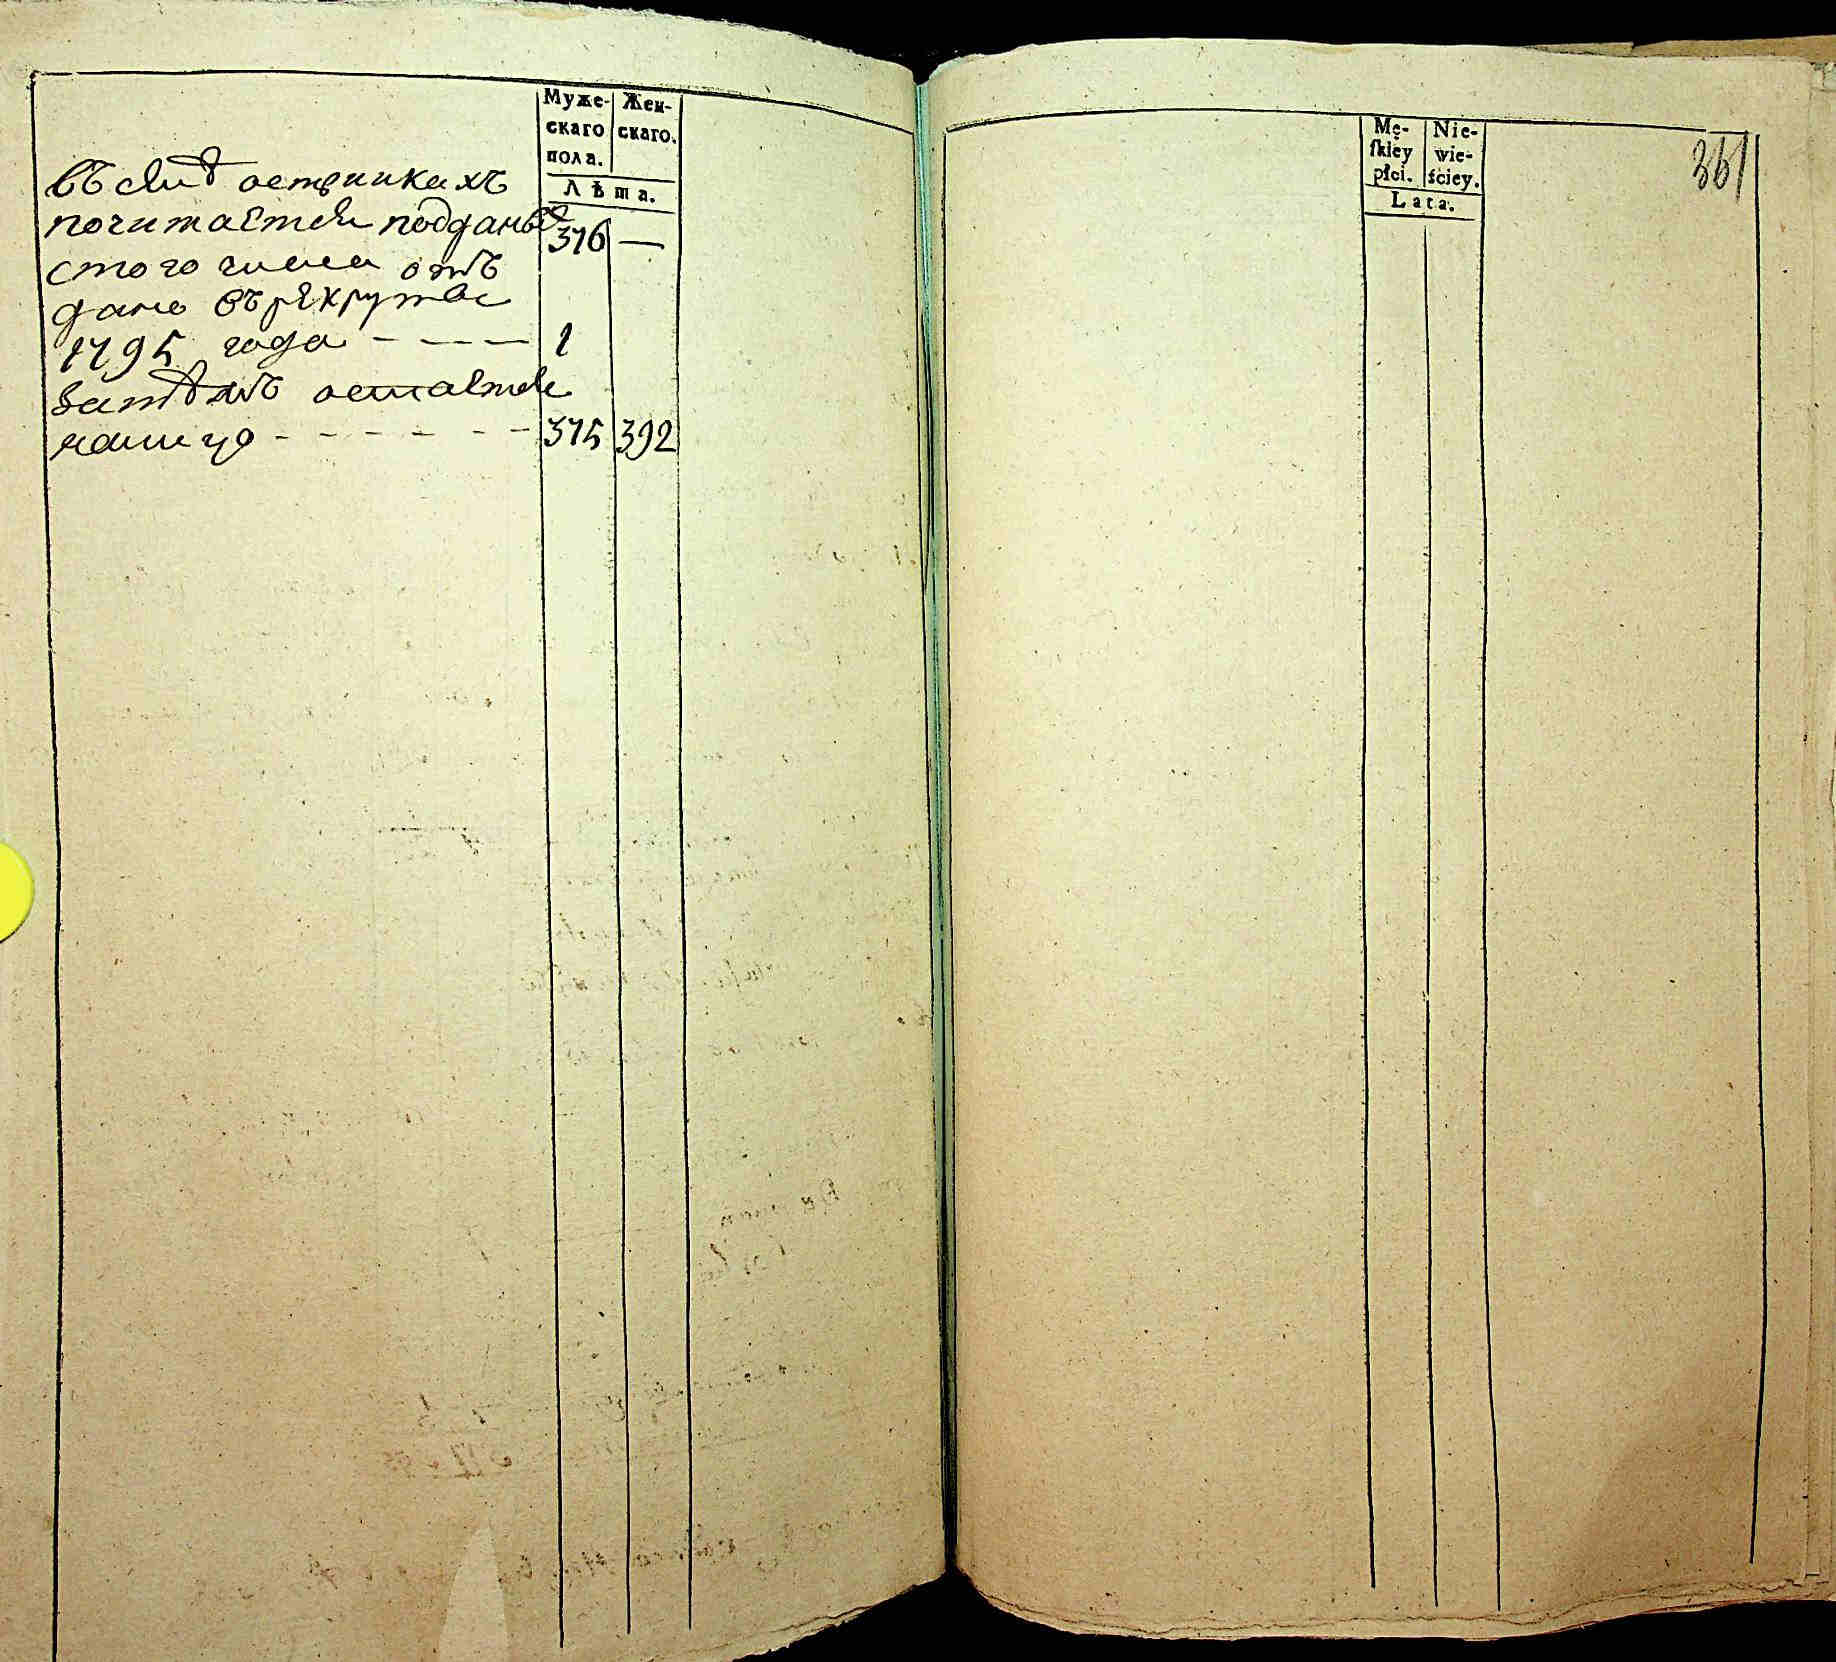 Муже-
скаго
пола.
Жен-
скаго.
Лѣта.
въ селѣ острникахъ
почитается подданые 376 —
с того числа отъ
дано въ рекруты
1795 года - - - - 1
затѣмъ остается
налицо - - - - - - 375 392
Mę-
ſkiey
płci.
Nie-
wie-
ściey.
Lata.
361